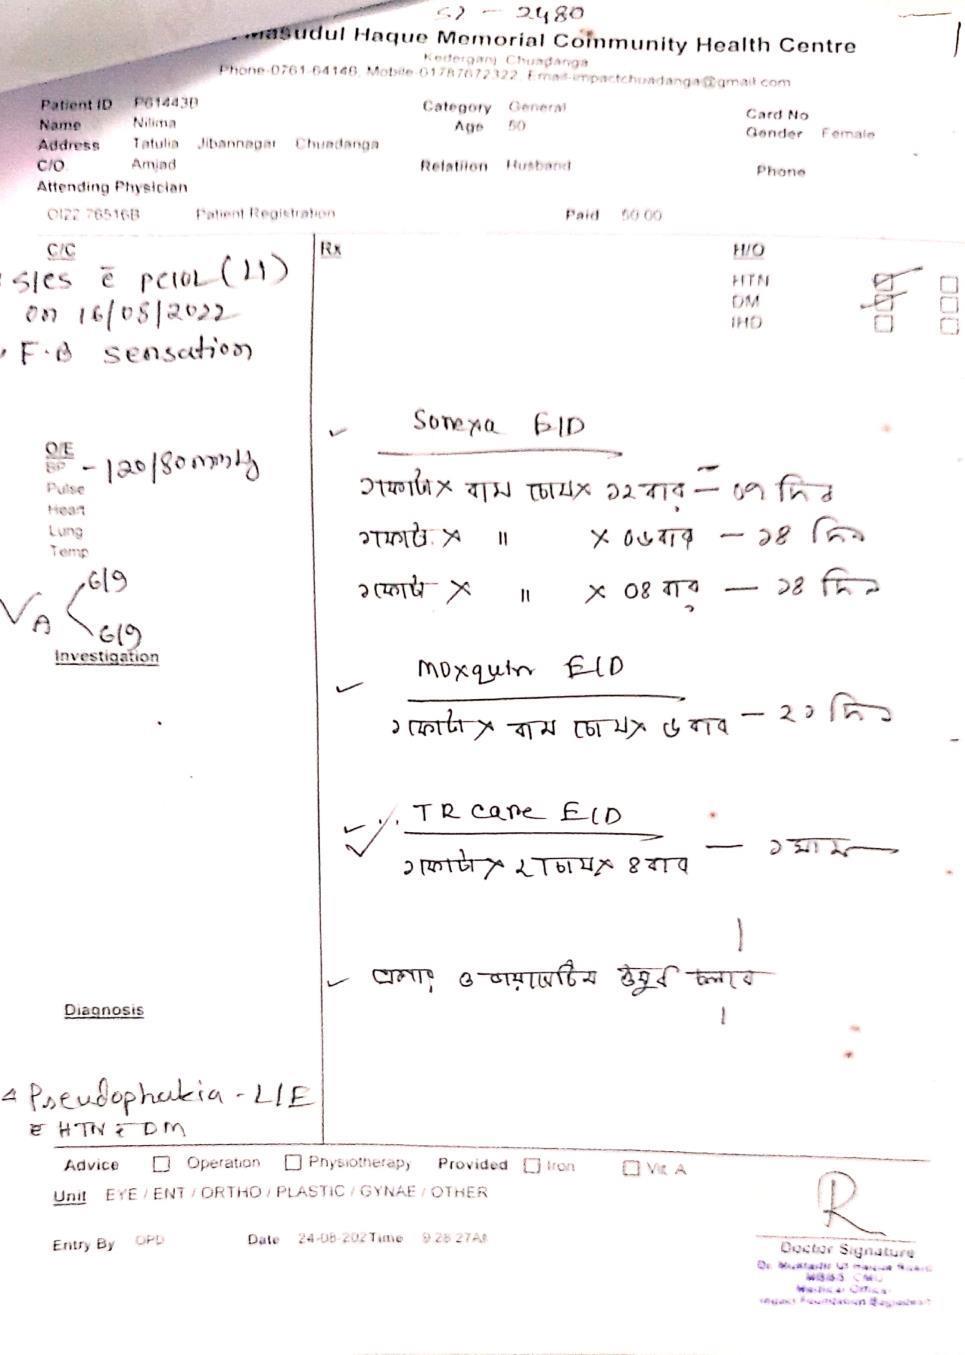 52 - 2480
Masudul Haque Memorial Community Health Centre
Kederganj Chuadanga
Phone-0761-64146, Mobile-01787672322, Email-impactchuadanga@gmail.com
Patient ID P61443D Category General Card No
Name Nilima Age 50 Gender Female
Address Tatulia Jibannagar Chuadanga
C/O Amjad Relatiion Husband Phone
Attending Physician
Patient Registration Paid 50.00
C/C Rx H/O
HTN
DM
IHD
S/ES c̄ PCIOL (LI)
on 16/08/2022
F.B sensation
O/E
BP - 120/80mmHg
Pulse
Heart
Lung
Temp
VA 6/9
6/9
Investigation
Sonexa E/D
১ফোটা × বাম চোখ × ১২ বার - ০৭ দিন
১ফোটা × " × ০৬ বার - ১৪ দিন
১ফোটা × " × ০৪ বার - ১৪ দিন
Moxquin E/D
১ফোটা × বাম চোখ × ৬ বার - ২১ দিন
TR Care E/D
১ফোটা × ২ চোখ × ৪ বার - ১ মাস
ও ডায়াবেটিস ঔষুধ চলবে
Diagnosis
Pseudophakia - L/E
c̄ HTN c̄ DM
Advice Operation Physiotherapy Provided Iron Vit A
Unit EYE / ENT / ORTHO / PLASTIC / GYNAE / OTHER
Entry By OPD Date 24-08-202 Time 9:28:27AM
Doctor Signature
MBBS CMU
Medical Officer
Impact Foundation Bangladesh